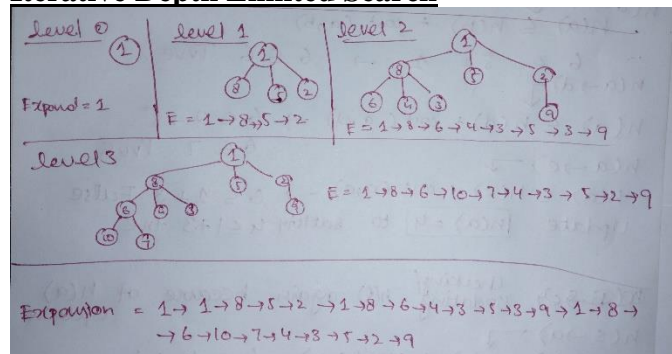 Iterative Depth Limited Search
level 0
1
Expand = 1
level 1
1
8 5 2
E = 1→8→5→2
level 2
1
8 5 2
6 4 3 9
E = 1→8→6→4→3→5→3→9
level 3
1
8 5 2
6 4 3 9
10 7
E = 1→8→6→10→7→4→3→5→2→9
Expansion = 1→1→8→5→2→1→8→6→4→3→5→3→9→1→8→
→6→10→7→4→3→5→2→9